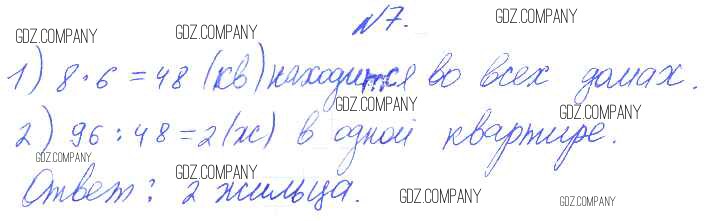 №7.
1) 8·6=48 (кв) находится во всех домах.
2) 96:48=2(ж) в одной квартире.
Ответ: 2 жильца.
GDZ.COMPANY
GDZ.COMPANY
GDZ.COMPANY
GDZ.COMPANY
GDZ.COMPANY
GDZ.COMPANY
GDZ.COMPANY
GDZ.COMPANY
GDZ.COMPANY